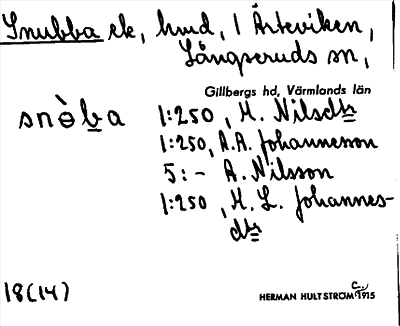 Snubba ek, hmd, I Årteviken,
Långseruds sn,
Gillbergs hd, Värmlands län
snòba 1:250, H. Nilsdtr
1:250, A.A. Johannesson
5:- A. Nilsson
1:250, H. L. Johannes-
dtr
18(14)
HERMAN HULTSTRÖM c. 1915